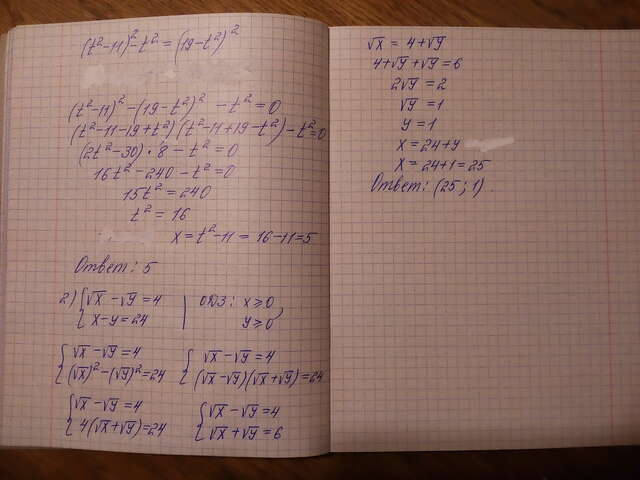 (t²-11)²-t² = (19-t²)²
(t²-11)²-(19-t²)²-t²=0
(t²-11-19+t²)(t²-11+19-t²)-t²=0
(2t²-30)·8-t²=0
16t²-240-t²=0
15t²=240
t²=16
x=t²-11=16-11=5
Ответ: 5
2) {√x-√y=4 | ОДЗ: x≥0,
{x-y=24 | y≥0
{√x-√y=4 {√x-√y=4
{(√x)²-(√y)²=24 {(√x-√y)(√x+√y)=24
{√x-√y=4 {√x-√y=4
{4(√x+√y)=24 {√x+√y=6
√x=4+√y
4+√y+√y=6
2√y=2
√y=1
y=1
x=24+y
x=24+1=25
Ответ: (25;1).